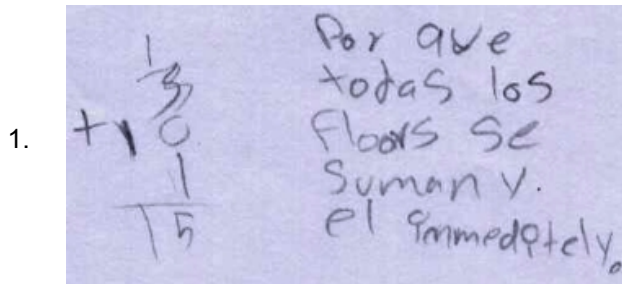 1.
1
3
+ 10
1
15
Por que
todas los
floors se
suman y.
el immeditely.